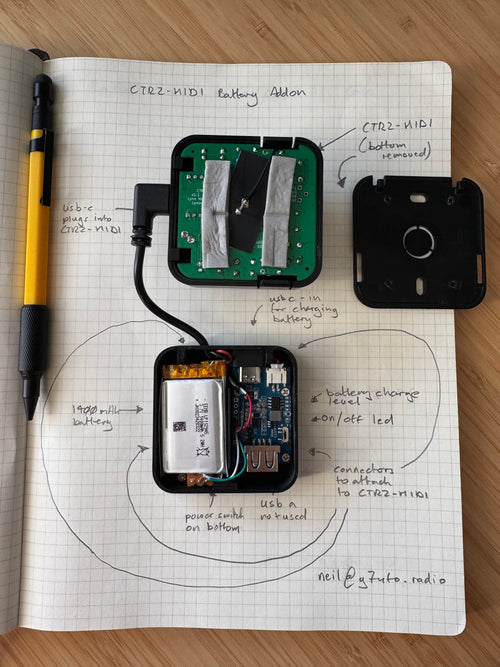 CTR2-MIDI Battery Addon
CTR2-MIDI
(bottom
removed)
usb-c
plugs into
CTR2-MIDI
usbc-in
for charging
battery
1400mAh
battery
battery charge
level
on/off led
connectors
to attach
to CTR2-MIDI
power switch
on bottom
usb a
not used